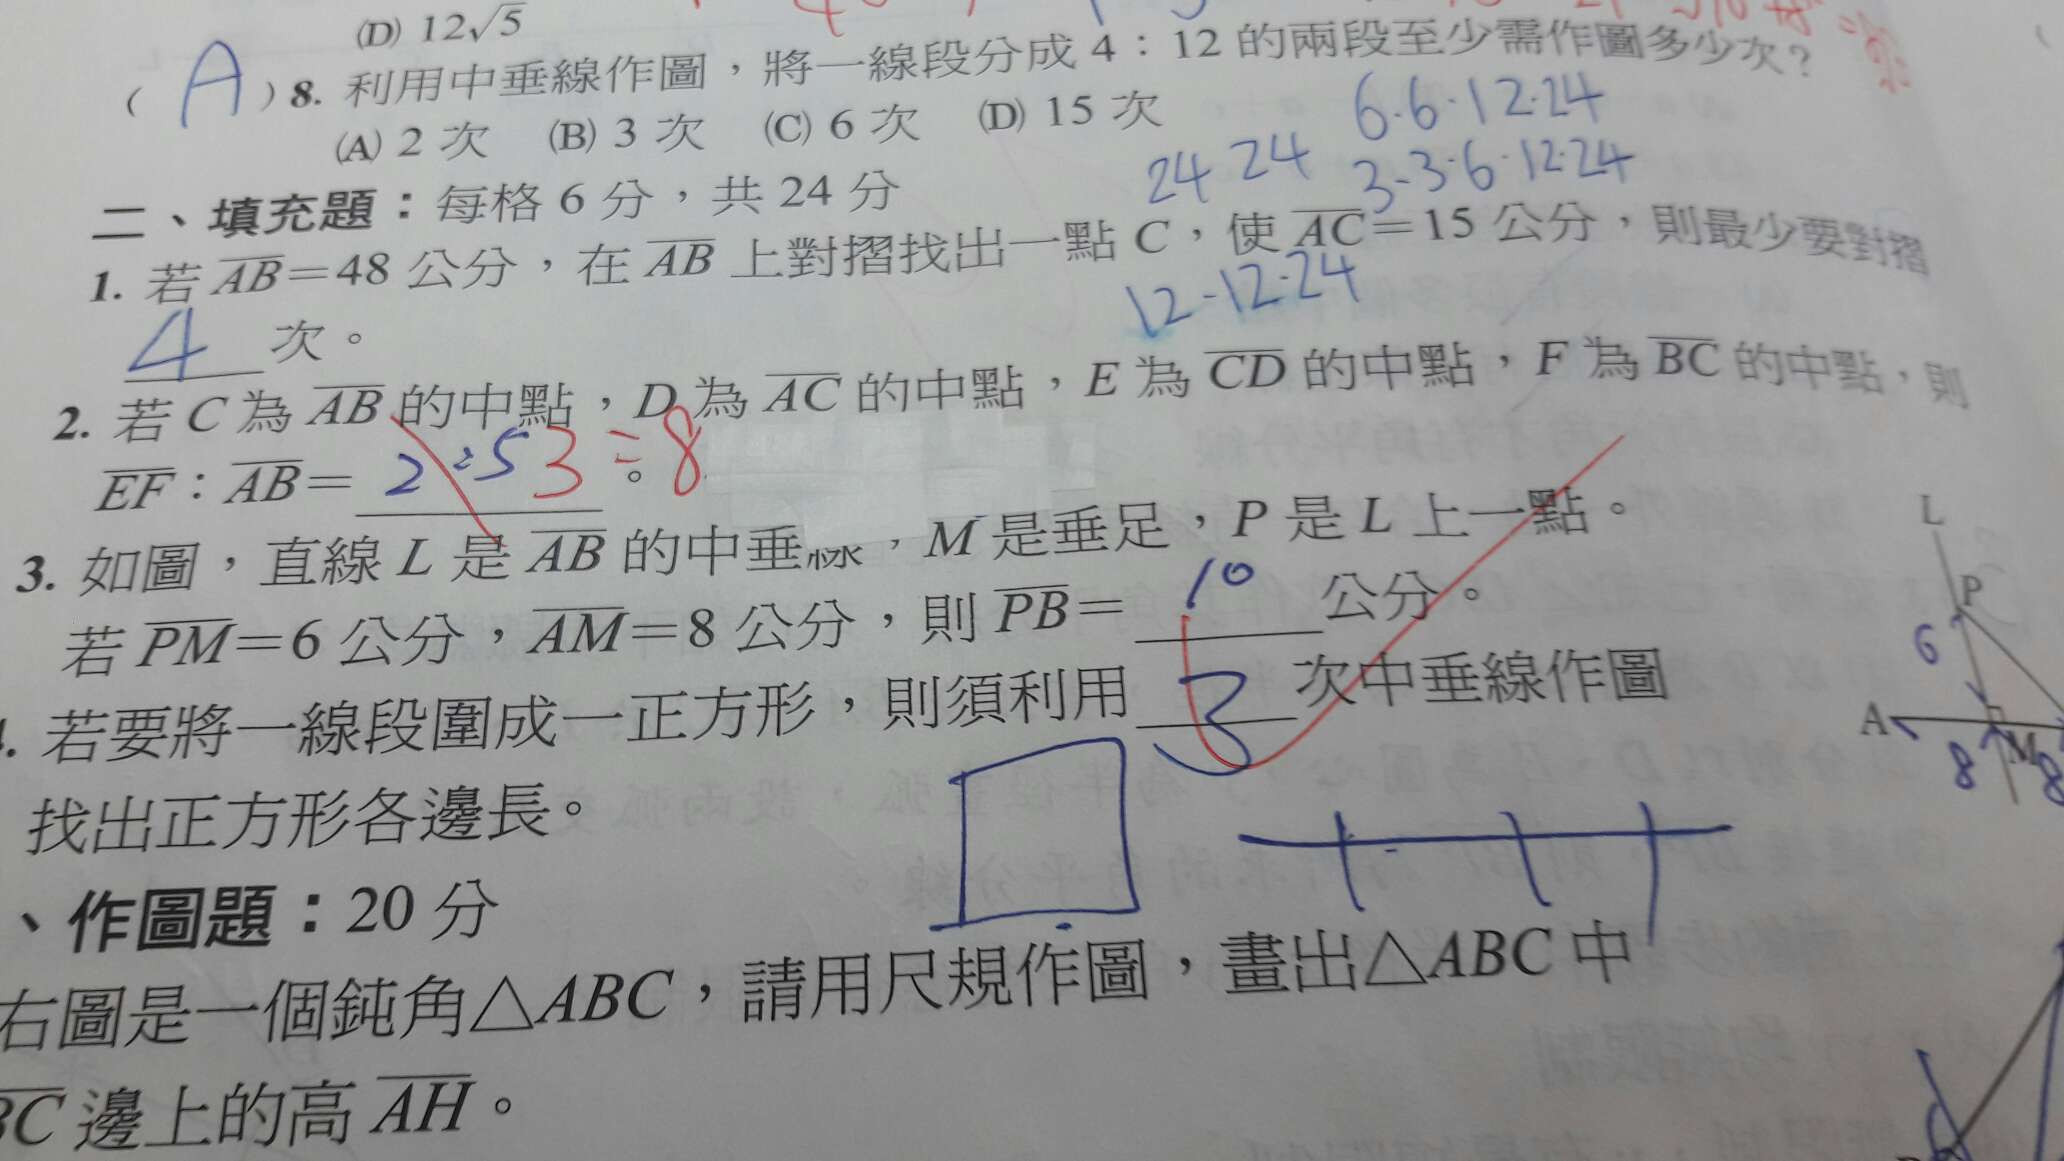 (D) 12√5
( A ) 8. 利用中垂線作圖，將一線段分成 4：12 的兩段至少需作圖多少次？
(A) 2 次 (B) 3 次 (C) 6 次 (D) 15 次
6.6.12.24
24 24
3-3.6.12.24
二、填充題：每格 6 分，共 24 分
1. 若 AB=48 公分，在 AB 上對摺找出一點 C，使 AC=15 公分，則最少要對摺
12-12.24
4 次。
2. 若 C 為 AB 的中點，D 為 AC 的中點，E 為 CD 的中點，F 為 BC 的中點，則
EF：AB= 2:5 3:8 。
3. 如圖，直線 L 是 AB 的中垂線，M 是垂足，P 是 L 上一點。
若 PM=6 公分，AM=8 公分，則 PB= 10 公分。
L
P
6
A
M
8
8
. 若要將一線段圍成一正方形，則須利用 3 次中垂線作圖
找出正方形各邊長。
、作圖題：20 分
右圖是一個鈍角△ABC，請用尺規作圖，畫出△ABC 中
BC 邊上的高 AH。